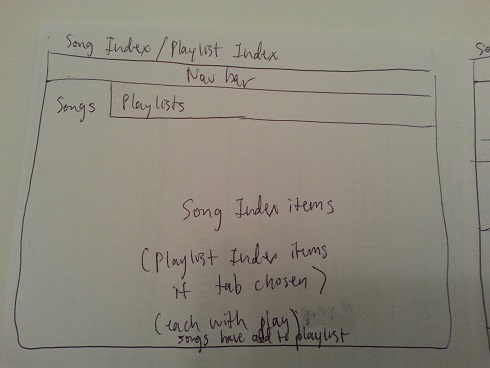 Song Index/Playlist Index
Nav bar
Songs
Playlists
Song Index items
(Playlist Index items
if tab chosen)
(each with play)
songs have add to playlist
So